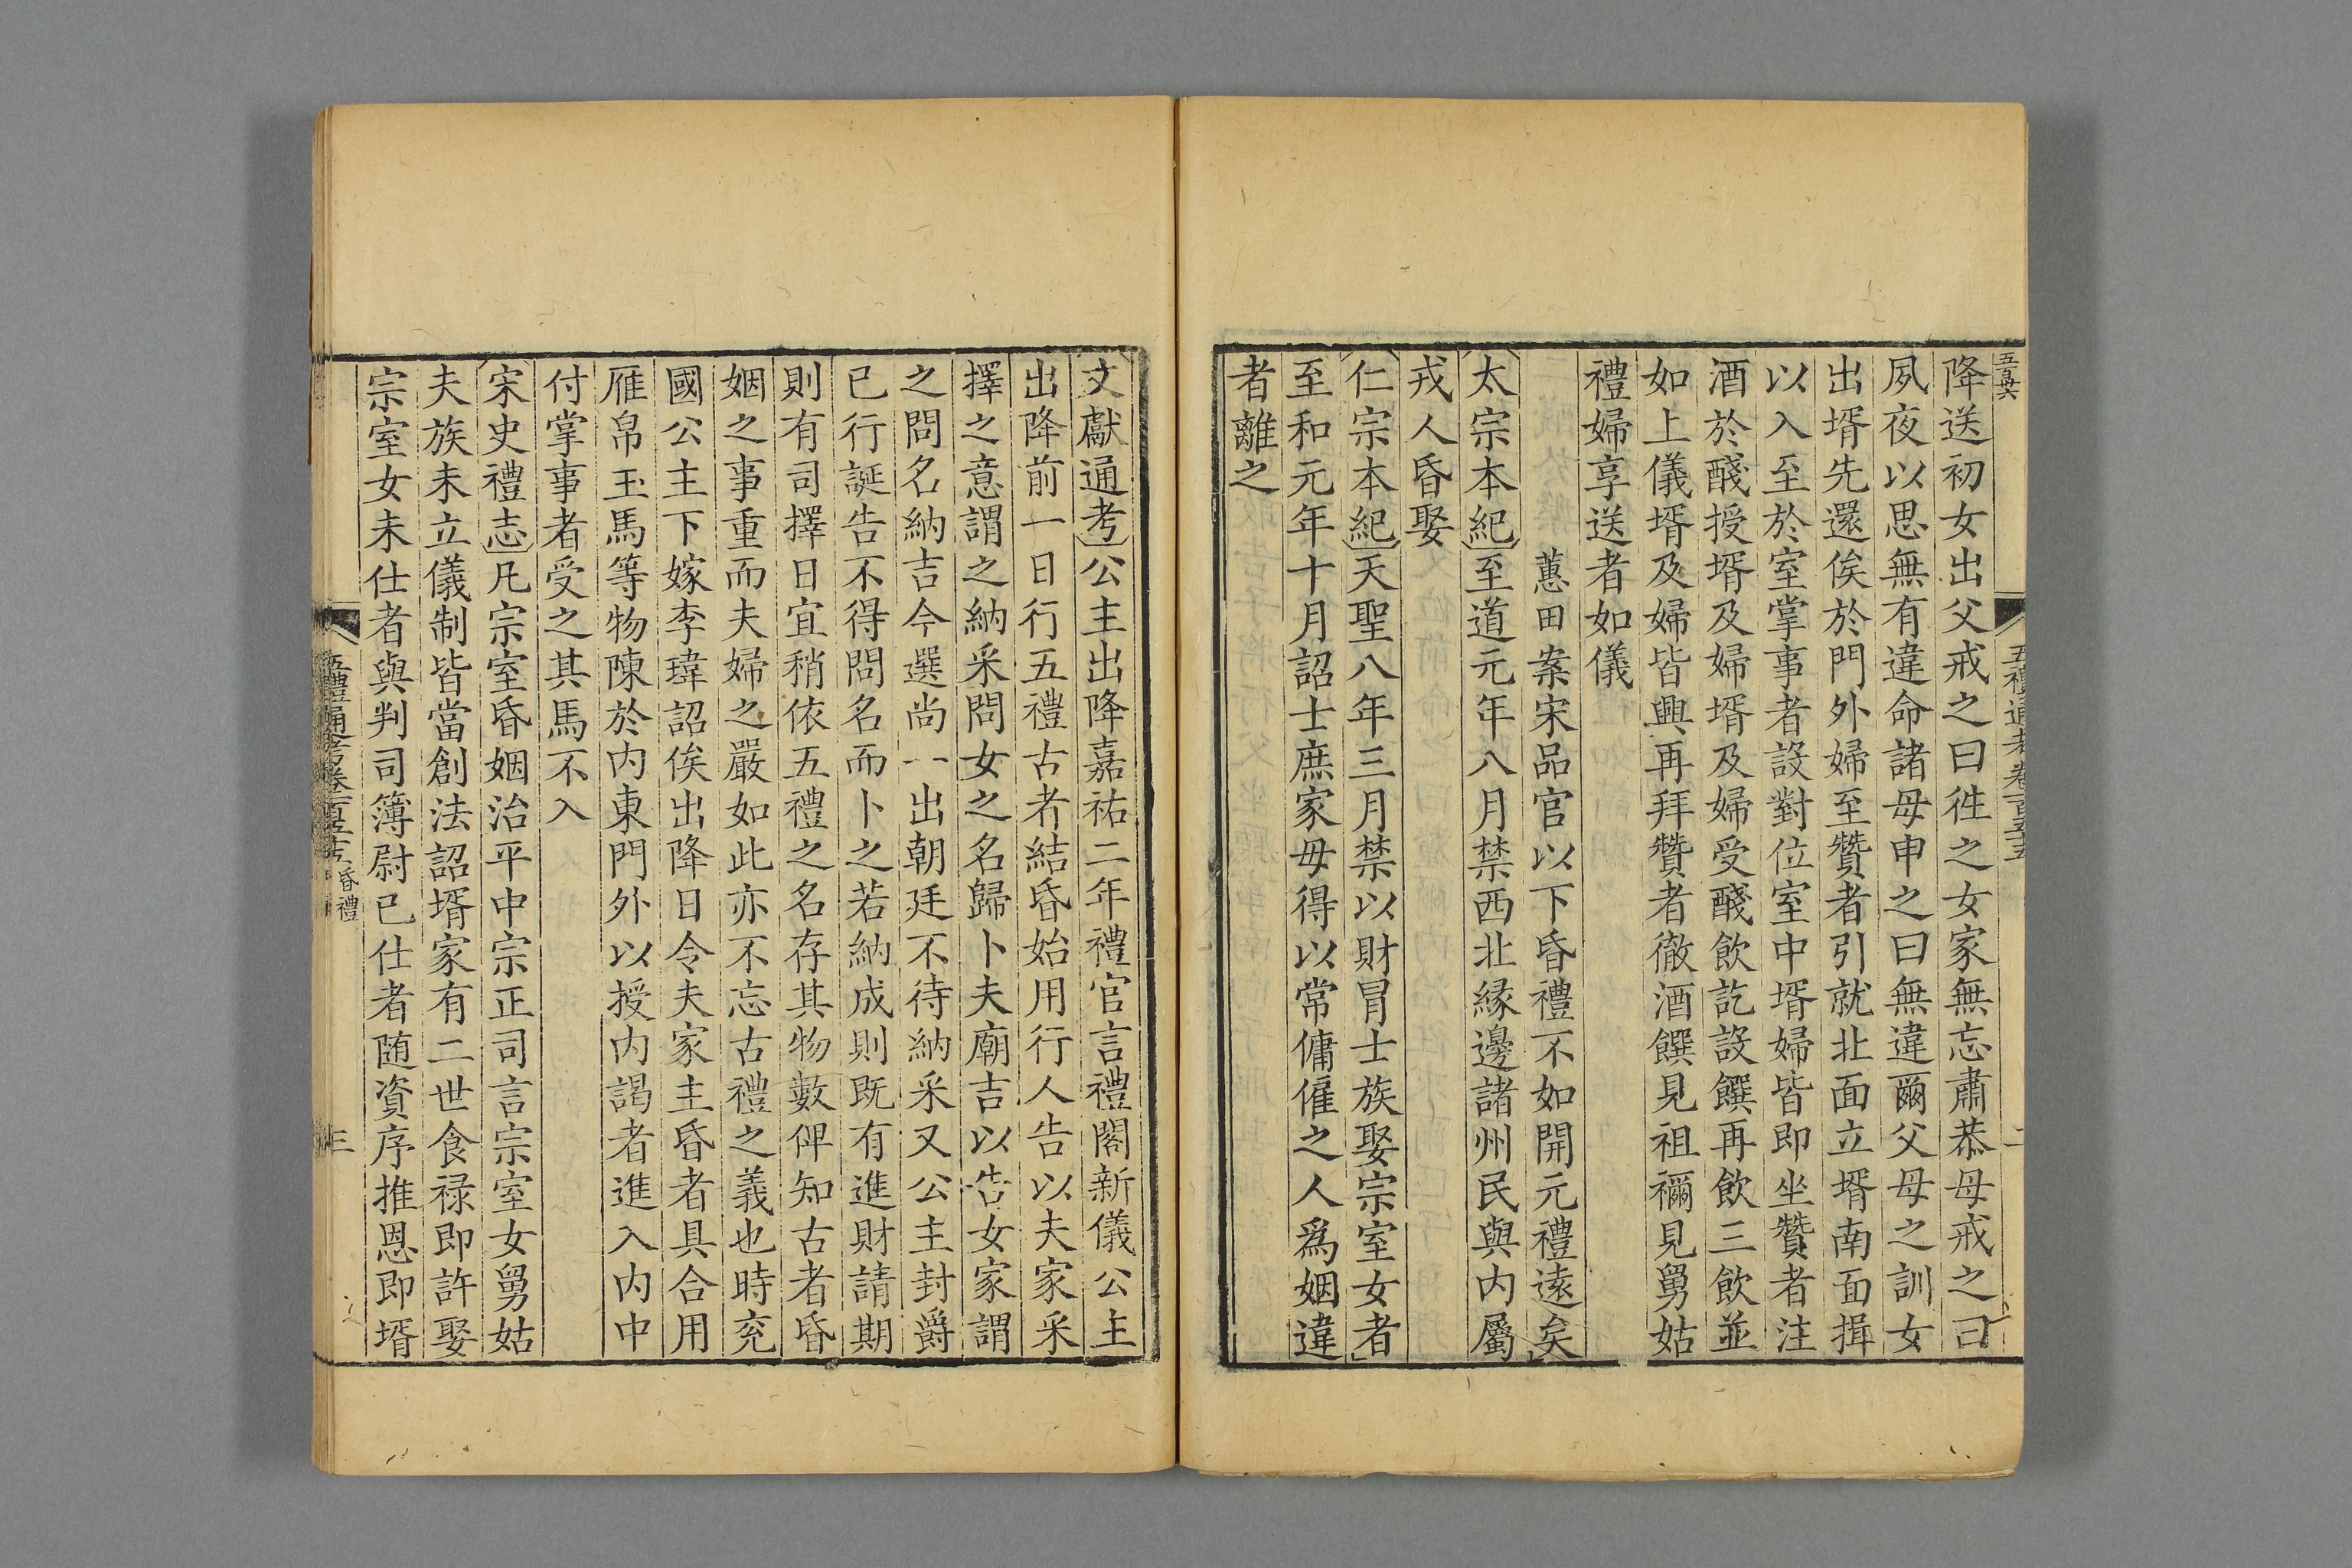 降送初女出父戒之曰徃之女家無忘肅恭母戒之曰
夙夜以思無有違命諸母申之曰無違爾父母之訓女
出壻先還俟於門外婦至贊者引就北面立壻南面揖
以入至於室掌事者設對位室中壻婦皆即坐贊者注
酒於醆授壻及婦壻及婦受醆飲訖設饌再飲三飲並
如上儀壻及婦皆興再拜贊者徹酒饌見祖禰見舅姑
禮婦享送者如儀
蕙田案宋品官以下昏禮不如開元禮遠矣
太宗本紀至道元年八月禁西北縁邊諸州民與内屬
戎人昏娶
仁宗本紀天聖八年三月禁以財冒士族娶宗室女者
至和元年十月詔士庶家毋得以常傭僱之人爲姻違
者離之
文獻通考公主出降嘉祐二年禮官言禮閣新儀公主
出降前一日行五禮古者結昏始用行人告以夫家采
擇之意謂之納采問女之名歸卜夫廟吉以告女家謂
之問名納吉今選尚一出朝廷不待納采又公主封爵
已行誕告不得問名而卜之若納成則既有進財請期
則有司擇日宜稍依五禮之名存其物數俾知古者昏
姻之事重而夫婦之嚴如此亦不忘古禮之義也時兖
國公主下嫁李瑋詔俟出降日令夫家主昏者具合用
雁帛玉馬等物陳於内東門外以授内謁者進入内中
付掌事者受之其馬不入
宋史禮志凡宗室昏姻治平中宗正司言宗室女舅姑
夫族未立儀制皆當創法詔壻家有二世食禄即許娶
宗室女未仕者與判司簿尉已仕者随資序推恩即壻
五禮通考卷一百五十五 昏禮
三